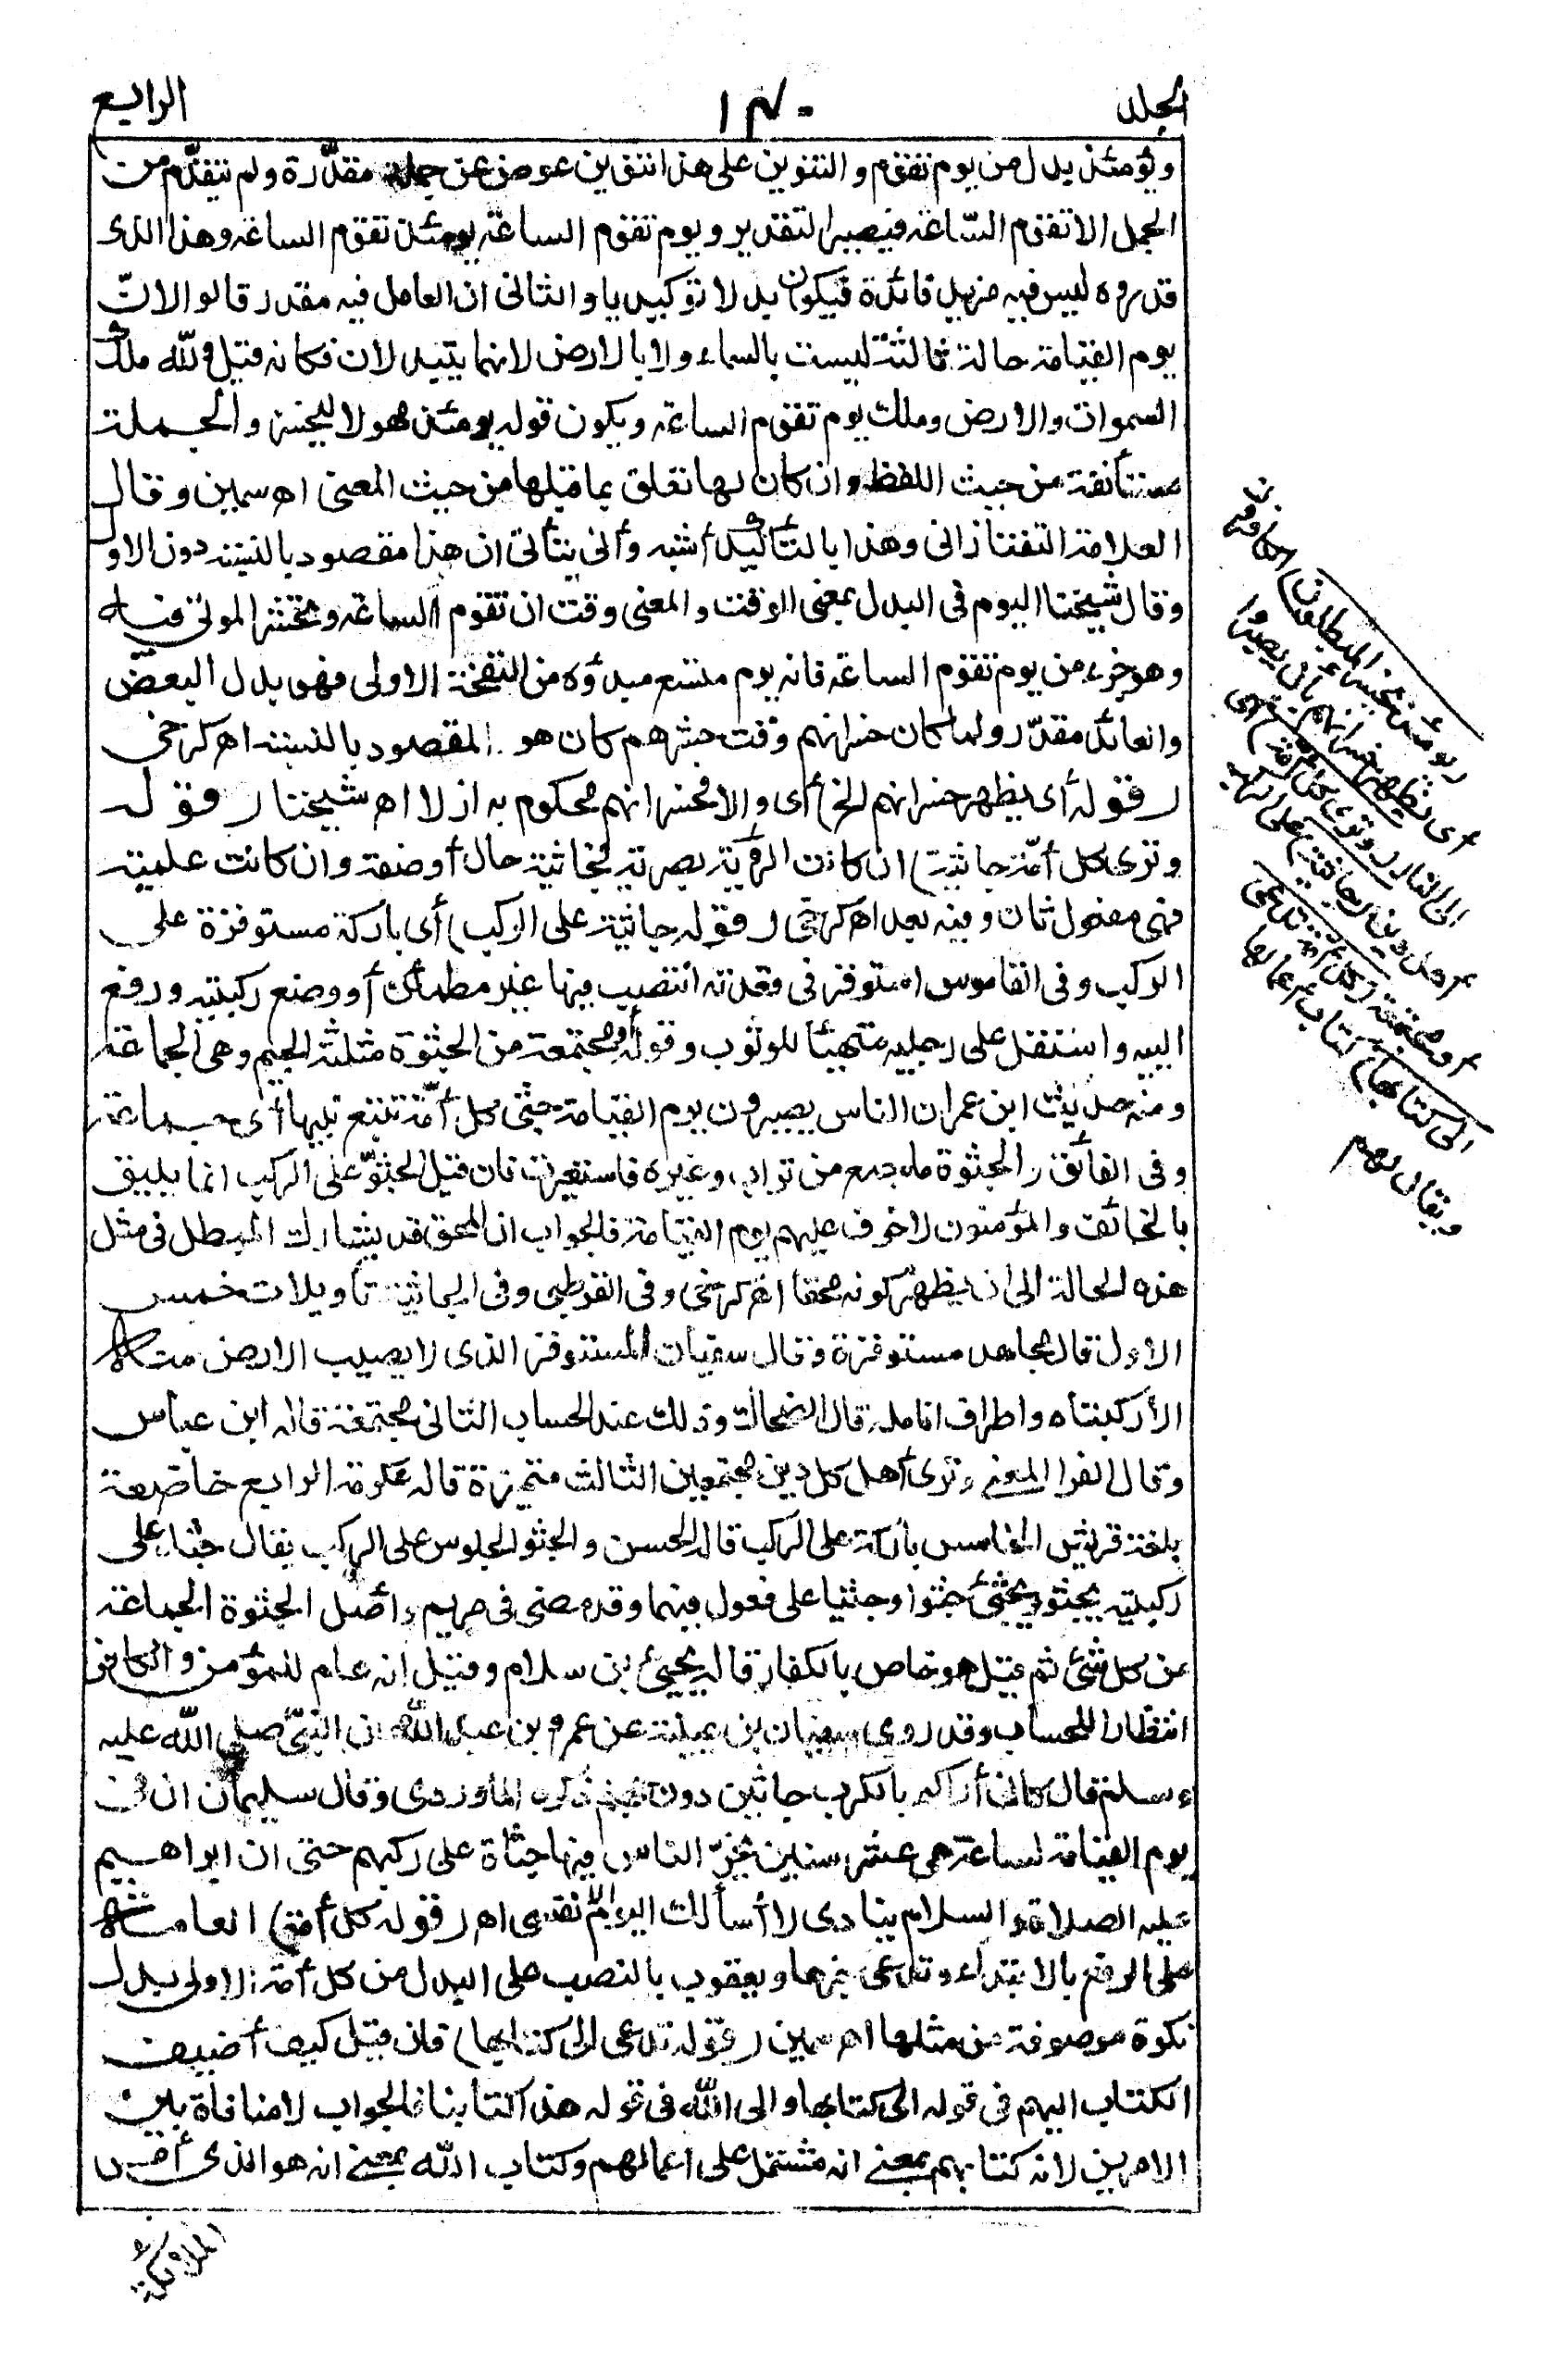 الجلد
١٣٠
الرابع
ويومئذ بدل من يوم تقوم والتنوين على هذا تنوين عوض عن جملة مقدّرة ولم يتقدّم من
الجمل الا تقوم السّاعة فيصير التقدير ويوم تقوم الساعة يومئذ تقوم الساعة وهذا الذى
قدروه ليس فيه مزيد فائدة فيكون بدلا توكيديا والثانى ان العامل فيه مقدر قالوا لانّ
يوم القيامة حالة ثالثة ليست بالسماء ولا بالارض لانهما يتبدلان فكانه قيل ولله ملك
السموات والارض وملك يوم تقوم الساعة ويكون قوله يومئذ معمولا ليخسر والجملة
مستأنفة من حيث اللفظ وان كان لها تعلق بما قبلها من حيث المعنى اهـ سمين وقال
العلامة التفتازانى وهذا بالتأكيد أشبه وأنى يتأتى ان هذا مقصود بالنسبة دون الاول
وقال شيخنا اليوم فى البدل بمعنى الوقت والمعنى وقت ان تقوم الساعة وتحشر الموتى فيه
وهو جزء من يوم تقوم الساعة فانه يوم متسع مبدؤه من النفخة الاولى فهو بدل البعض
والعائد مقدّر ولما كان خسرانهم وقت حشرهم كان هو المقصود بالنسبة اهـ كرخى
(قوله أى يظهر خسرانهم الخ) أى والا فخسرانهم محكوم به ازلا اهـ شيخنا (قوله
وترى كل أمّة جاثية) ان كانت الرؤية بصرية فجاثية حال أو صفة وان كانت علمية
فهى مفعول ثان وفيه بعد اهـ كرخى (قوله جاثية على الركب) أى باركة مستوفزة على
الركب وفى القاموس استوفز فى قعدته انتصب فيها غير مطمأن أو وضع ركبتيه ورفع
اليبه واستقل على رجليه متهيئا للوثوب وقوله أو مجتمعة من الجثوة مثلثة الجيم وهى الجماعة
ومنه حديث ابن عمر ان الناس يصيرون يوم القيامة جثى كل أمّة تتبع نبيها أى جماعة
وفى الفائق (الجثوة ما جمع من تراب وغيره فاستعيرت فان قيل الجثوّ على الركب انما يليق
بالخائف والمؤمنون لا خوف عليهم يوم القيامة فالجواب ان المحق قد يشارك المبطل فى مثل
هذه الحالة الى ان يظهر كونه محقا اهـ كرخى وفى القرطبى وفى الجاثية تأويلات خمس
الاول قال مجاهد مستوفزة وقال سفيان المستوفز الذى لا يصيب الارض منه
الا ركبتاه واطراف انامله قال الضحاك وذلك عند الحساب الثانى مجتمعة قاله ابن عباس
وقال الفرا المعنى وترى أهل كل دين مجتمعين الثالث متميزة قاله عكرمة الرابع خاضعة
بلغة قريش الخامس باركة على الركب قاله الحسن والجثو الجلوس على الركب يقال جثا على
ركبتيه يجثو ويجثى جثوا وجثيا على فعول فيهما وقد مضى فى مريم وأصل الجثوة الجماعة
من كل شئ ثم قيل هو خاص بالكفار قاله يحيى بن سلام وقيل انه عام للمؤمن والكافر
انتظارا للحساب وقد روى سفيان بن عيينة عن عمرو بن عبد الله ان النبىّ صلى الله عليه
وسلم قال كانى أراكم بالكرب جاثين دون جهنم ذكره الماوردى وقال سليمان ان فى
يوم القيامة لساعة هى عشر سنين يخرّ الناس فيها جثاة على ركبهم حتى ان ابراهيم
عليه الصلاة والسلام ينادى لا أسألك اليوم الا نفسى اهـ (قوله كل أمّة) العامة
على الرفع بالابتداء وتدعى خبرها ويعقوب بالنصب على البدل من كل أمّة الاولى بدل
نكرة موصوفة من مثلها اهـ سمين (قوله تدعى الى كتابها) فان قيل كيف أضيف
الكتاب اليهم فى قوله الى كتابها والى الله فى قوله هذا كتابنا فالجواب لا منافاة بين
الامرين لانه كتابهم بمعنى انه مشتمل على اعمالهم وكتاب الله بمعنى انه هو الذى أمر
الملائكة
(يومئذ يخسر المبطلون) الكافرون
أى يظهر خسرانهم بأن يصيروا
الى النار (وترى كل أمّة) أى
أهل دين (جاثية) على الركب
أو مجتمعة (كل أمّة تدعى
الى كتابها) كتاب أعمالها
ويقال لهم